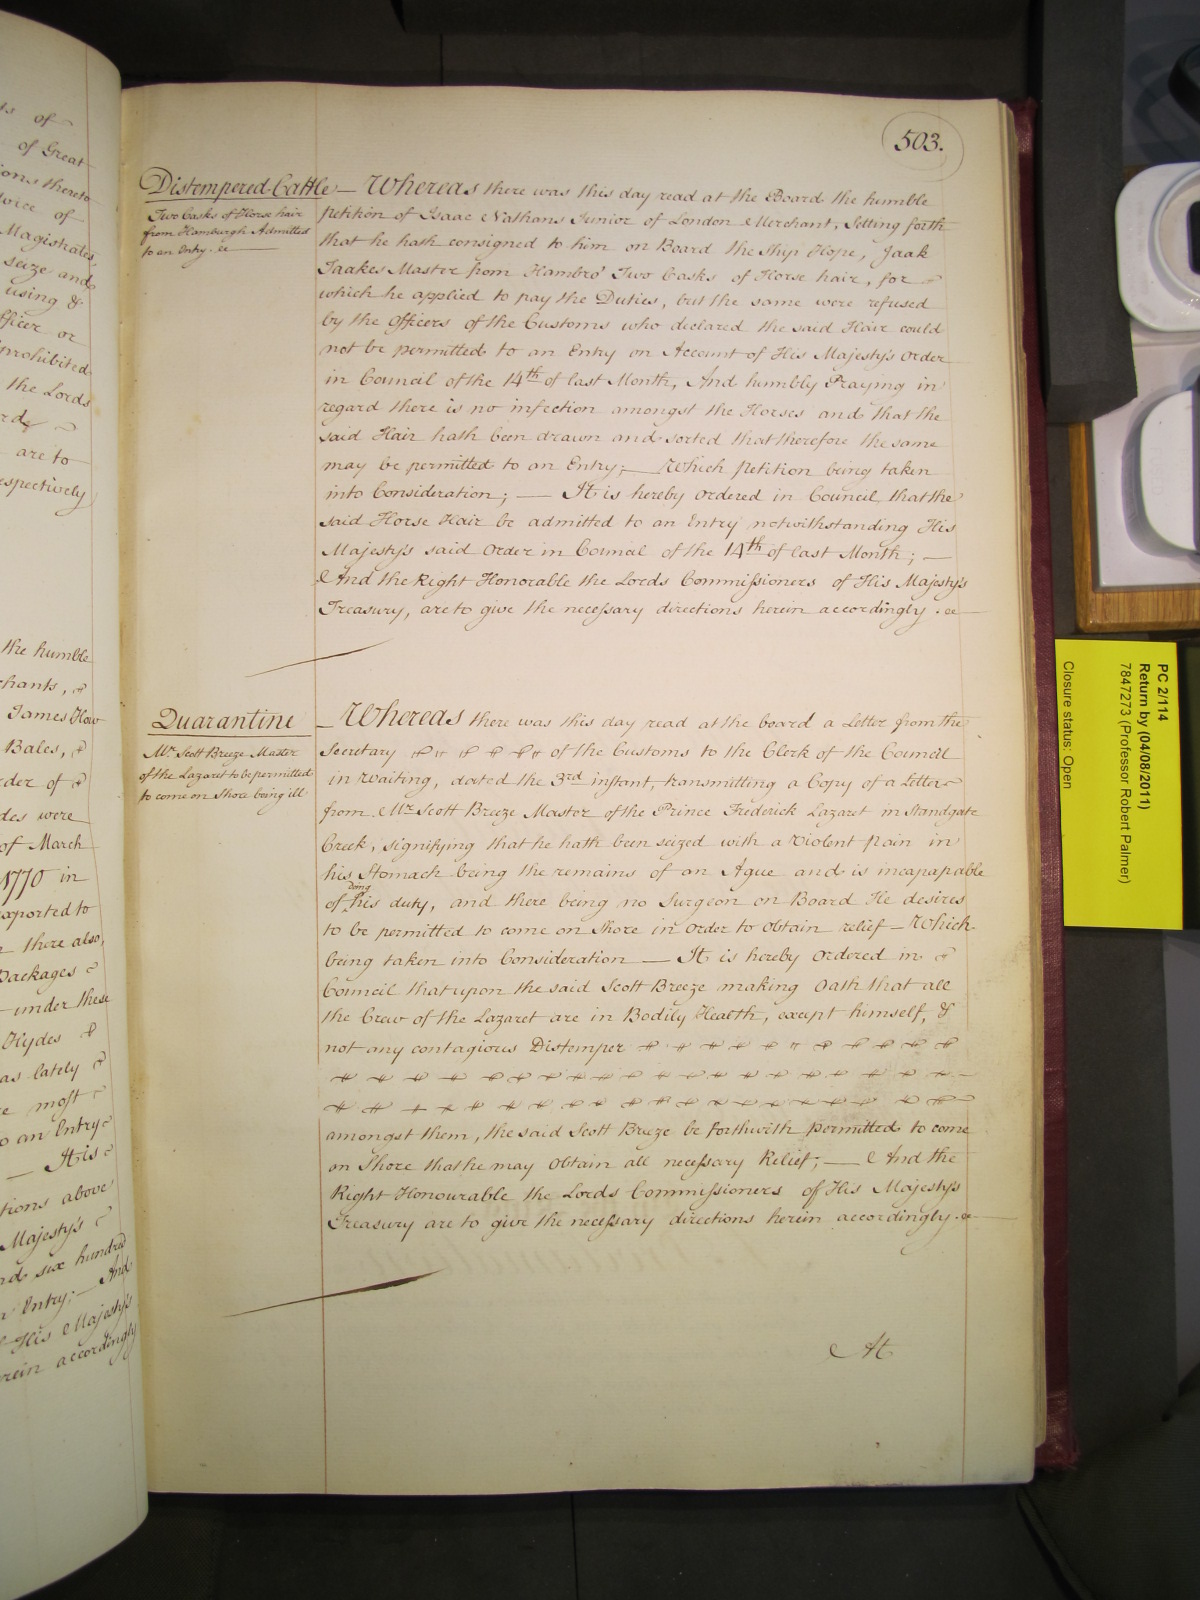 503.
Distempered Cattle — Whereas there was this day read at the Board the humble
Two Casks of Horse hair
from Hamburgh Admitted
to an Entry. &c
petition of Isaac Nathans Junior of London Merchant, Setting forth
that he hath consigned to him on Board the Ship Hope, Jaak
Jaakes Master from Hambro' Two Casks of Horse hair, for
which he applied to pay the Duties, but the same were refused
by the Officers of the Customs who declared the said Hair could
not be permitted to an Entry on Account of His Majesty's Order
in Council of the 14th of last Month, And humbly Praying in
regard there is no infection amongst the Horses and that the
said Hair hath been drawn and sorted that therefore the same
may be permitted to an Entry; — Which Petition being taken
into Consideration; — It is hereby Ordered in Council, that the
said Horse Hair be admitted to an Entry notwithstanding His
Majesty's said Order in Council of the 14th of last Month; —
And the Right Honorable the Lords Commissioners of His Majesty's
Treasury, are to give the necessary directions herein accordingly. &c
Quarantine
Mr. Scott Breeze Master
of the Lazaret to be permitted
to come on Shore being ill
Whereas there was this day read at the board a Letter from the
Secretary of the Customs to the Clerk of the Council
in Waiting, dated the 3rd instant, transmitting a Copy of a Letter
from Mr. Scott Breeze Master of the Prince Frederick Lazaret in Standgate
Creek, signifying that he hath been seized with a Violent Pain in
his Stomach being the remains of an Ague and is incapapable
doing
of his duty, and there being no Surgeon on Board He desires
to be permitted to come on Shore in order to obtain relief — Which
being taken into Consideration — It is hereby Ordered in
Council that upon the said Scott Breeze making Oath that all
the Crew of the Lazaret are in Bodily Health, except himself, &
not any contagious Distemper
amongst them, the said Scott Breeze be forthwith permitted to come
on Shore that he may Obtain all necessary Relief; — And the
Right Honourable the Lords Commissioners of His Majesty's
Treasury are to give the necessary directions herein accordingly. &c
At
of
of Great
ions thereto
of
Magistrates,
seize and
using &
fficer or
prohibited
the Lords
are to
espectively
the humble
chants,
James How
Bales,
rder of
des were
of March
1770 in
xported to
there also,
Packages
under these
Hydes
as lately
most
o an Entry
It is
tions above
Majesty's
nd six hundred
Entry; — And
His Majesty's
rein accordingly
PC 2/114
Return by (04/08/2011)
7847273 (Professor Robert Palmer)
Closure status: Open